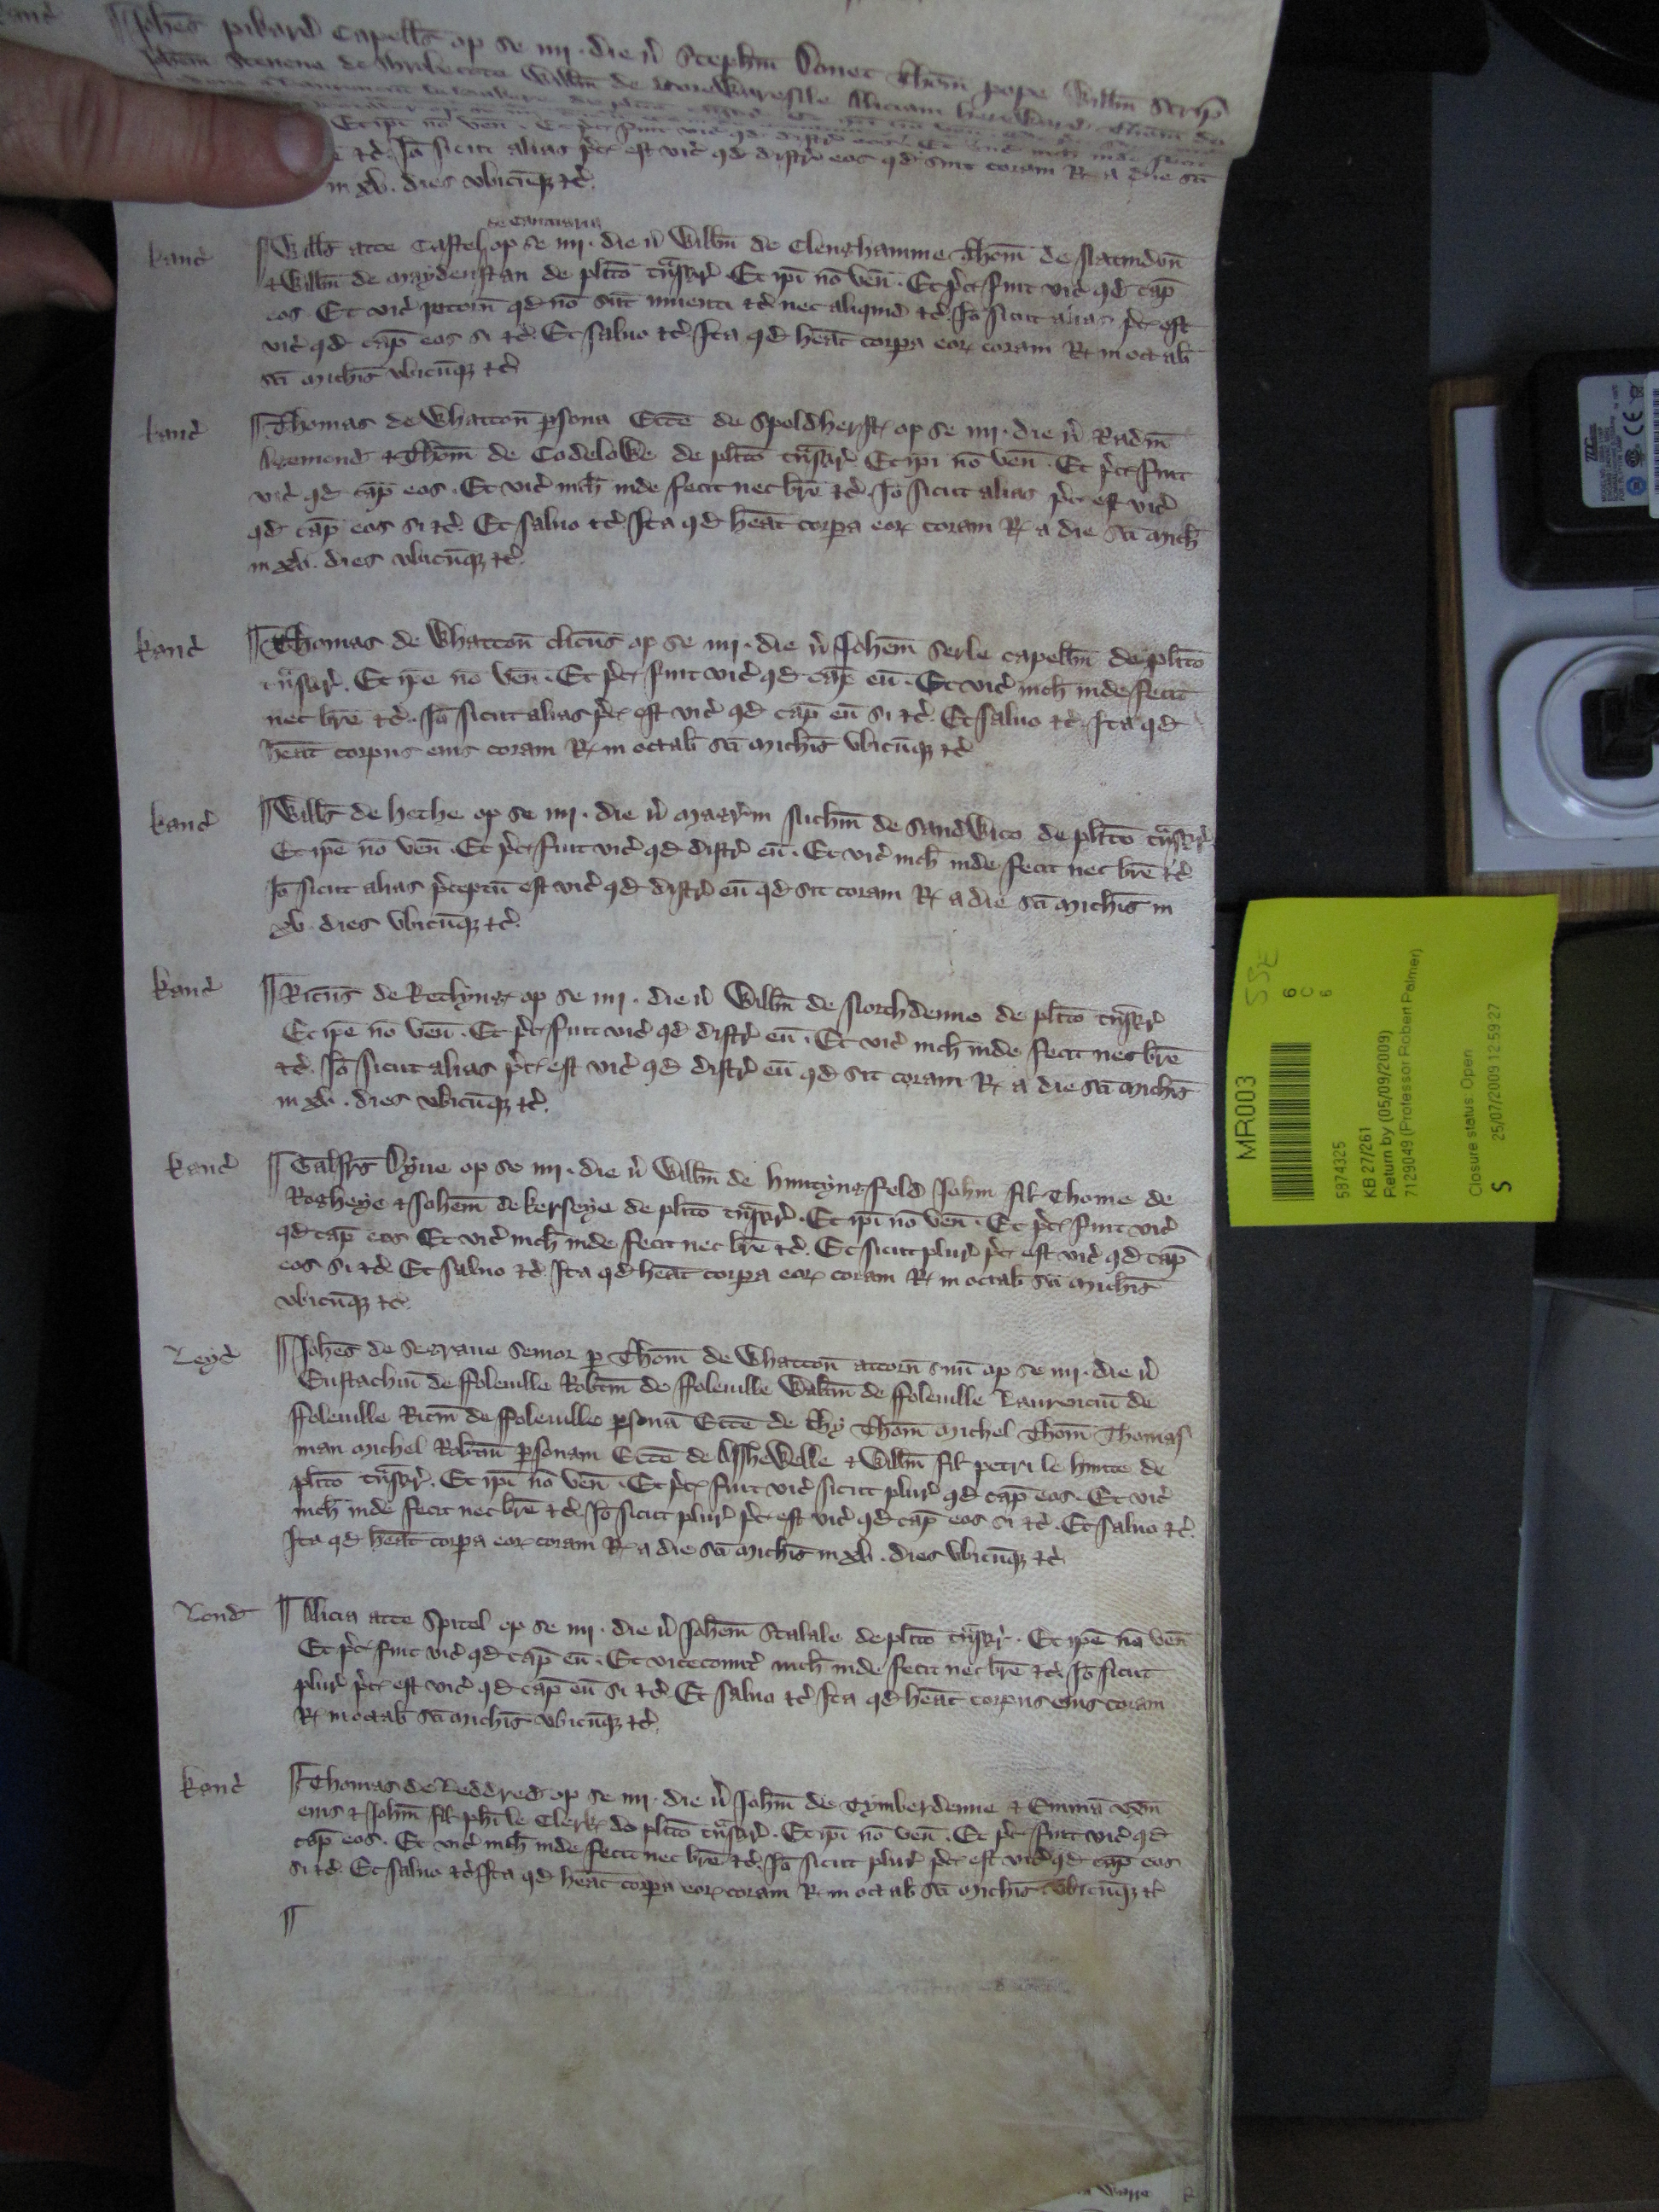 Joh̄es pikard Capell̄s op se iiij. die v̉s Steph̄m Donet Thom̄ pope Will̄m
Et ip̄i nō ven̄. Et p̄c fuit vic̉ qd distr̉ eos. Et vic̉ nich̄ inde fecit
&c̉. Iō sicut alias p̄c est vic̉ qd distr̉ eos qd sint coram R̉ a die sc̄i
in xv. dies vbicūq &c̉.
kanc̉
de Cantuaria
Will̄s atte Castel op se iiij. die v̉s Will̄m de Clenghamme Thom̄ de
& Will̄m de Maydenstan de pl̄ito tn̄sgr̉. Et ip̄i nō ven̄. Et p̄c fuit vic̉ qd cap̄
eos. Et vic̉ retorn̄ qd nō sūt inuenti &c̉ nec aliquid &c̉. Iō sicut alias p̄c est
vic̉ qd cap̄ eos si &c̉. Et saluo &c̉. Ita qd heāt corpora eor̉ coram R̉ in octab̄
sc̄i Mich̄is vbicūq &c̉
kanc̉
Thomas de Whatton̄ p̱sona Ecc̄e de Speldherst op se iiij. die v̉s Radm̄
& Thom̄ de Codelowe de pl̄ito tn̄sgr̉. Et ip̄i nō ven̄. Et p̄c fuit
vic̉ qd cap̄ eos. Et vic̉ nich̄ inde fecit nec br̄e &c̉. Iō sicut alias p̄c est vic̉
qd cap̄ eos si &c̉. Et saluo &c̉. Ita qd heāt corpora eor̉ coram R̉ a die sc̄i Mich̄
in xv. dies vbicūq &c̉.
kanc̉
Thomas de Whatton̄ cl̄icus op se iiij. die v̉s Joh̄em Serle capell̄m de pl̄ito
tn̄sgr̉. Et ip̄e nō ven̄. Et p̄c fuit vic̉ qd cap̄ eū. Et vic̉ nich̄ inde fecit
nec br̄e &c̉. Iō sicut alias p̄c est vic̉ qd cap̄ eū si &c̉. Et saluo &c̉. Ita qd
heāt corpus eius coram R̉ in octab̄ sc̄i Mich̄is vbicūq &c̉
kanc̉
Will̄s de hethe op se iiij. die v̉s Magr̄m Nich̄m de Sandwico de pl̄ito tn̄sgr̉
Et ip̄e nō ven̄. Et p̄c fuit vic̉ qd distr̉ eū. Et vic̉ nich̄ inde fecit nec br̄e &c̉
Iō sicut alias p̄ceptū est vic̉ qd distr̉ eū qd sit coram R̉ a die sc̄i Mich̄is in
xv. dies vbicūq &c̉.
kanc̉
Ric̄us de Rethyng op se iiij. die v̉s Will̄m de Northdenne de pl̄ito tn̄sgr̉
Et ip̄e nō ven̄. Et p̄c fuit vic̉ qd distr̉ eū. Et vic̉ nich̄ inde fecit nec br̄e
&c̉. Iō sicut alias p̄c est vic̉ qd distr̉ eū qd sit coram R̉ a die sc̄i Mich̄is
in xv. dies vbicūq &c̉.
kanc̉
Galfr̄s Dyne op se iiij. die v̉s Will̄m de huntyngfeld Joh̄m fil Thome de
Rogheye & Joh̄em de kerseye de pl̄ito tn̄sgr̉. Et ip̄i nō ven̄. Et p̄c fuit vic̉
qd cap̄ eos Et vic̉ nich̄ inde fecit nec br̄e &c̉. Et sicut plur̉ p̄c est vic̉ qd cap̄
eos si &c̉. Et saluo &c̉. Ita qd heāt corpora eor̉ coram R̉ in octab̄ sc̄i Mich̄is
vbicūq &c̉.
Leyc̉
Joh̄es de Segraue Senior p̱ Thom̄ de Whatton̄ attorn̄ suū op se iiij. die v̉s
Eustachiū de ffoleuille Rob̄tm de ffoleuille Walt̄m de ffoleuille Laurenciū de
ffoleuille Ric̄m de ffoleuille p̱sonā Ecc̄e de thy Thom̄ Michel Thom̄ Thomas
man Michel Rob̄tm p̱sonam Ecc̄e de Asshewelle & Will̄m fil petri le hunte de
pl̄ito tn̄sgr̉. Et ip̄i nō ven̄. Et p̄c fuit vic̉ sicut plur̉ qd cap̄ eos. Et vic̉
nich̄ inde fecit nec br̄e &c̉. Iō sicut plur̉ p̄c est vic̉ qd cap̄ eos si &c̉. Et saluo &c̉.
Ita qd heāt corpora eor̉ coram R̉ a die sc̄i Mich̄is in xv. dies vbicūq &c̉
Lond̉
Alicia atte Spitel op se iiij. die v̉s Joh̄em Scalale de pl̄ito tn̄sgr̉. Et ip̄e nō ven̄
Et p̄c fuit vic̉ qd cap̄ eū. Et vicecomit̉ nich̄ inde fecit nec br̄e &c̉. Iō sicut
plur̉ p̄c est vic̉ qd cap̄ eū si &c̉. Et saluo &c̉ Ita qd heāt corpus eius coram
R̉ in octab̄ sc̄i Mich̄is vbicūq &c̉.
kanc̉
Thomas de Leddred op se iiij. die v̉s Joh̄m de Tymberdenne & Emmā vx̄m
eius & Joh̄m fil ph̄i le Clerk de pl̄ito tn̄sgr̉. Et ip̄i nō ven̄. Et p̄c fuit vic̉ qd
cap̄ eos. Et vic̉ nich̄ inde fecit nec br̄e &c̉. Iō sicut plur̉ p̄c est vic̉ qd cap̄ eos
si &c̉. Et saluo &c̉ Ita qd heāt corpora eor̉ coram R̉ in octab̄ sc̄i Mich̄is vbicūq &c̉
MR003
5874325
KB 27/261
Return by (05/09/2009)
7129049 (Professor Robert Palmer)
Closure status: Open
S 25/07/2009 12:59:27
SSE